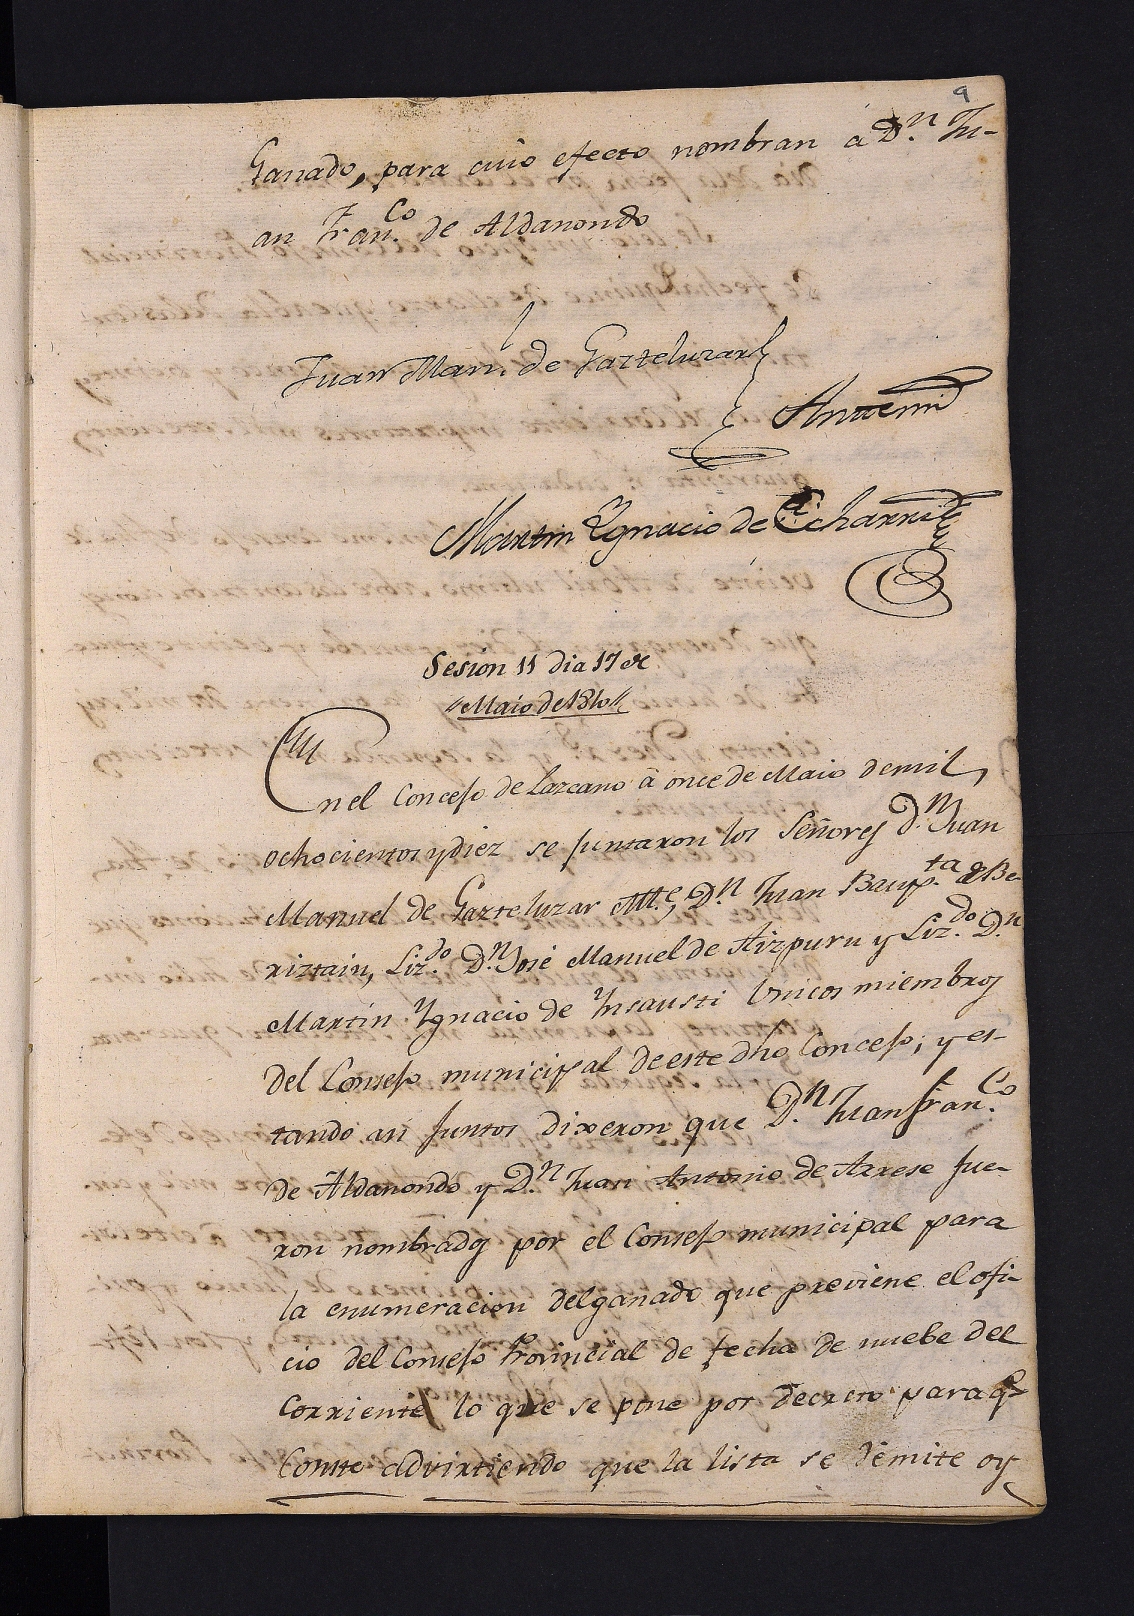 9
Ganado, para cuio efecto nombran á D.n Ju-
an Fran.co de Aldanondo
Juan Man.l de Gazteluzar
Ante mi
Martin Ygnacio de Echarri
Sesión 11 dia 17 de
"Maio de 1810"
En el Concejo de Lazcano â once de Maio de mil,
ochocientos y diez se juntaron los Señores D.n Juan
Manuel de Gazteluzar Mre, D.n Juan Baup.ta de Be-
riztain, Liz.do D.n José Manuel de Aizpuru y Liz.do D.n
Martin Ygnacio de Ynsausti Vnicos miembros
del Consejo municipal de este dho Concejo; y es-
tando asi juntos dixeron que D.n Juan Fran.co
de Aldanondo y D.n Juan Antonio de Arrese fue-
ron nombrados por el Consejo municipal para
la enumeracion del ganado que previene el ofi-
cio del Consejo Provincial de fecha de nuebe del
Corriente, lo que se pone por Decreto para q.e
Conste advirtiendo que la lista se remite oy